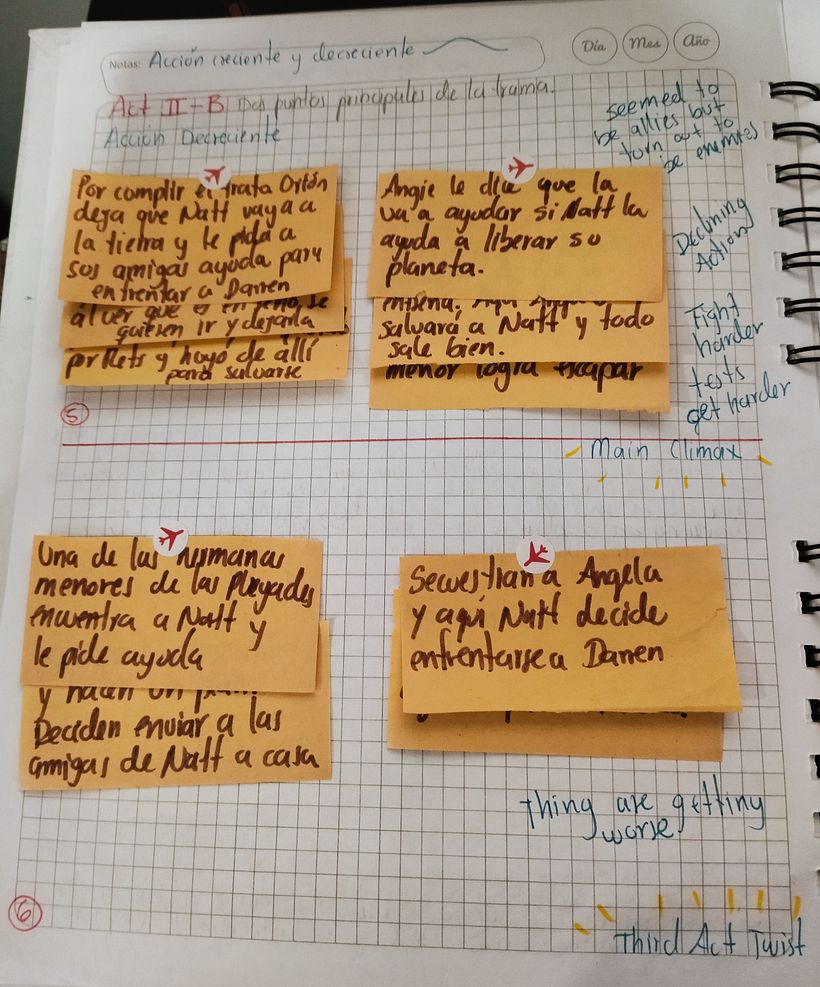 Notas: Acción creciente y decreciente
Día
Mes
Año
Act II-B Dos puntos principales de la trama.
Acción Decreciente
seemed to
be allies but
turn out to
be enemies
Por complir el trata Orión
deja que Natt vaya a
la tierra y le pida a
sus amigas ayuda para
enfrentar a Darren
al ver que es en
se
quieren ir y dejarla
por Nets y huyó de allí
para salvarse
Angie le dice que la
va a ayudar si Natt la
ayuda a liberar su
planeta.
salvará a Natt y todo
sale bien.
menor logra escapar
Declining
Action
Fight
harder
tests
get harder
5
Main Climax
Una de las hermanas
menores de las Pleyades
encuentra a Natt y
le pide ayuda
y hacen un
Deciden enviar a las
amigas de Natt a casa
Secuestran a Angela
y aquí Natt decide
enfrentarse a Darren
Thing are getting
worse
6
Third Act Twist